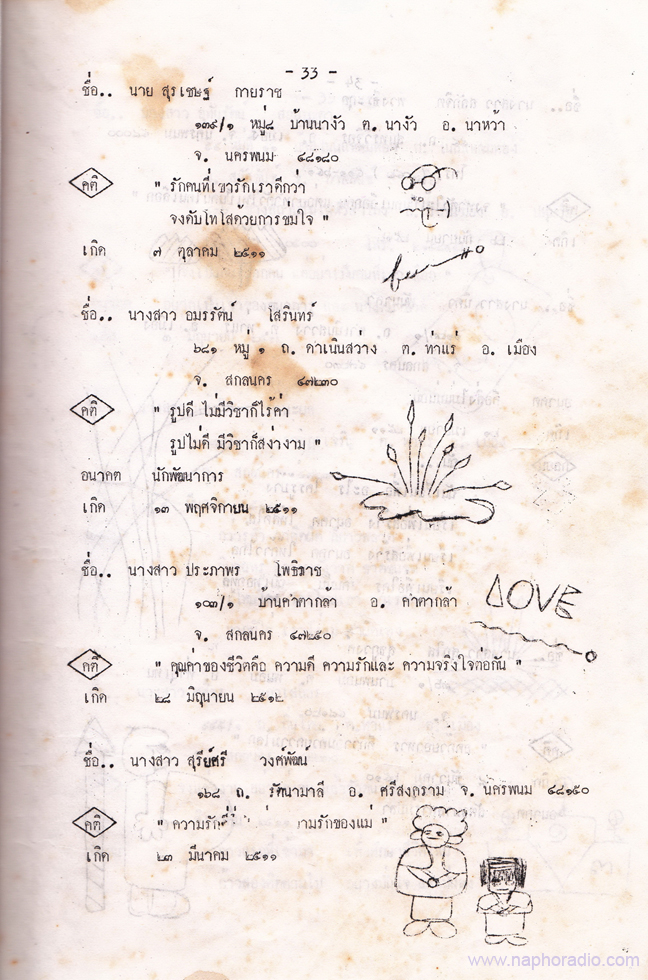 - 33 -
ชื่อ.. นาย สุรเชษฐ์ กายราช
๑๓๙/๑ หมู่๘ บ้านนางัว ต. นางัว อ. นาหว้า
จ. นครพนม ๔๘๑๘๐
คติ " รักคนที่เขารักเราดีกว่า
จงดับโทโสด้วยการข่มใจ "
เกิด ๗ ตุลาคม ๒๕๑๑
ชื่อ.. นางสาว อมรรัตน์ โสรินทร์
๖๘๑ หมู่ ๑ ถ. ดาเนินสว่าง ต. ท่าแร่ อ. เมือง
จ. สกลนคร ๔๗๒๓๐
คติ " รูปดี ไม่มีวิชาก็ไร้ค่า
รูปไม่ดี มีวิชาก็สง่างาม "
อนาคต นักพัฒนาการ
เกิด ๑๓ พฤศจิกายน ๒๕๑๑
ชื่อ.. นางสาว ประภาพร โพธิราช
๑๐๓/๑ บ้านคาตากล้า อ. คาตากล้า
LOVE
จ. สกลนคร ๔๗๒๕๐
คติ " คุณค่าของชีวิตคือ ความดี ความรักและ ความจริงใจต่อกัน "
เกิด ๒๘ มิถุนายน ๒๕๑๒
ชื่อ.. นางสาว สุรีย์ศรี วงศ์พัฒน์
๑๖๘ ถ. รัตนามาลี อ. ศรีสงคราม จ. นครพนม ๔๘๑๕๐
คติ " ความรัก ามรักของแม่ "
เกิด ๒๓ มีนาคม ๒๕๑๑
www.naphoradio.com